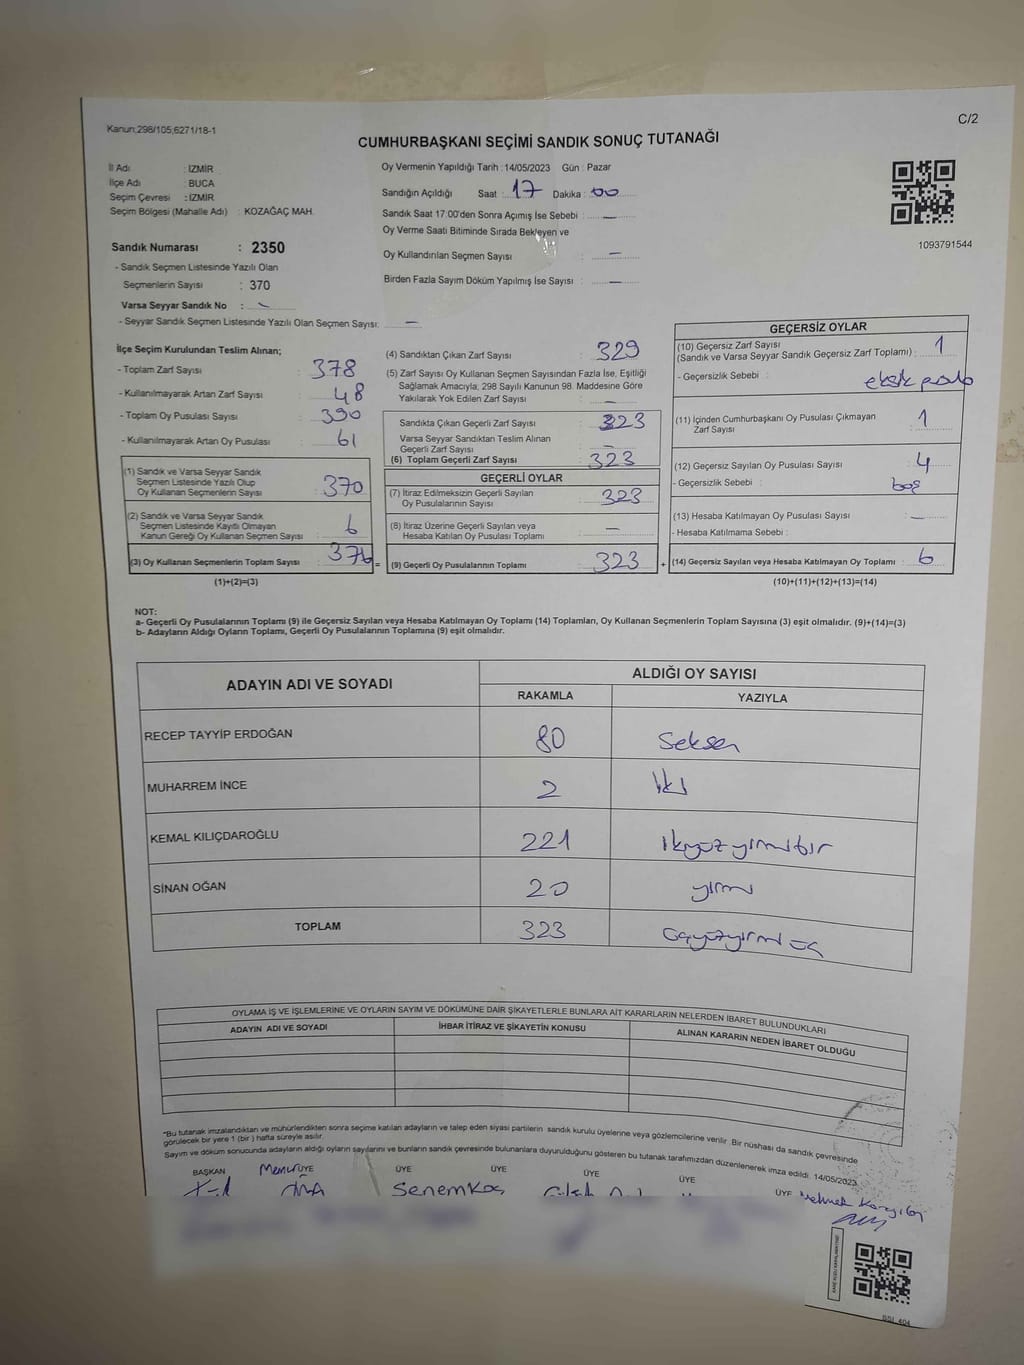 Kanun;298/105;6271/18-1
C/2
CUMHURBAŞKANI SEÇİMİ SANDIK SONUÇ TUTANAĞI
İl Adı : İZMİR
İlçe Adı : BUCA
Seçim Çevresi : İZMİR
Seçim Bölgesi (Mahalle Adı) : KOZAĞAÇ MAH.
Sandık Numarası : 2350
- Sandık Seçmen Listesinde Yazılı Olan
Seçmenlerin Sayısı : 370
Varsa Seyyar Sandık No : -
- Seyyar Sandık Seçmen Listesinde Yazılı Olan Seçmen Sayısı: -
Oy Vermenin Yapıldığı Tarih : 14/05/2023 Gün : Pazar
Sandığın Açıldığı Saat : 17 Dakika : 00
Sandık Saat 17:00'den Sonra Açımış İse Sebebi : -
Oy Verme Saati Bitiminde Sırada Bekleyen ve
Oy Kullandırılan Seçmen Sayısı : -
Birden Fazla Sayım Döküm Yapılmış İse Sayısı : -
1093791544
İlçe Seçim Kurulundan Teslim Alınan;
- Toplam Zarf Sayısı : 378
- Kullanılmayarak Artan Zarf Sayısı : 48
- Toplam Oy Pusulası Sayısı : 390
- Kullanılmayarak Artan Oy Pusulası : 61
(1) Sandık ve Varsa Seyyar Sandık
Seçmen Listesinde Yazılı Olup
Oy Kullanan Seçmenlerin Sayısı : 370
(2) Sandık ve Varsa Seyyar Sandık
Seçmen Listesinde Kayıtlı Olmayan
Kanun Gereği Oy Kullanan Seçmen Sayısı : 6
(3) Oy Kullanan Seçmenlerin Toplam Sayısı : 376 =
(1)+(2)=(3)
(4) Sandıktan Çıkan Zarf Sayısı : 329
(5) Zarf Sayısı Oy Kullanan Seçmen Sayısından Fazla İse, Eşitliği
Sağlamak Amacıyla, 298 Sayılı Kanunun 98. Maddesine Göre
Yakılarak Yok Edilen Zarf Sayısı : -
Sandıkta Çıkan Geçerli Zarf Sayısı : 323
Varsa Seyyar Sandıktan Teslim Alınan
Geçerli Zarf Sayısı : -
(6) Toplam Geçerli Zarf Sayısı : 323
GEÇERLİ OYLAR
(7) İtiraz Edilmeksizin Geçerli Sayılan
Oy Pusulalarının Sayısı : 323
(8) İtiraz Üzerine Geçerli Sayılan veya
Hesaba Katılan Oy Pusulası Toplamı : -
(9) Geçerli Oy Pusulalarının Toplamı : 323 +
GEÇERSİZ OYLAR
(10) Geçersiz Zarf Sayısı
(Sandık ve Varsa Seyyar Sandık Geçersiz Zarf Toplamı) : 1
- Geçersizlik Sebebi :
eksik
(11) İçinden Cumhurbaşkanı Oy Pusulası Çıkmayan
Zarf Sayısı : 1
(12) Geçersiz Sayılan Oy Pusulası Sayısı : 4
- Geçersizlik Sebebi : boş
(13) Hesaba Katılmayan Oy Pusulası Sayısı : -
- Hesaba Katılmama Sebebi :
(14) Geçersiz Sayılan veya Hesaba Katılmayan Oy Toplamı : 6
(10)+(11)+(12)+(13)=(14)
NOT:
a- Geçerli Oy Pusulalarının Toplamı (9) ile Geçersiz Sayılan veya Hesaba Katılmayan Oy Toplamı (14) Toplamları, Oy Kullanan Seçmenlerin Toplam Sayısına (3) eşit olmalıdır. (9)+(14)=(3)
b- Adayların Aldığı Oyların Toplamı, Geçerli Oy Pusulalarının Toplamına (9) eşit olmalıdır.
ADAYIN ADI VE SOYADI
ALDIĞI OY SAYISI
RAKAMLA YAZIYLA
RECEP TAYYİP ERDOĞAN 80 Seksen
MUHARREM İNCE 2 iki
KEMAL KILIÇDAROĞLU 221 ikiyüzyirmibir
SİNAN OĞAN 20 yirmi
TOPLAM 323 üçyüzyirmi üç
OYLAMA İŞ VE İŞLEMLERİNE VE OYLARIN SAYIM VE DÖKÜMÜNE DAİR ŞİKAYETLERLE BUNLARA AİT KARARLARIN NELERDEN İBARET BULUNDUKLARI
ADAYIN ADI VE SOYADI İHBAR İTİRAZ VE ŞİKAYETİN KONUSU ALINAN KARARIN NEDEN İBARET OLDUĞU
*Bu tutanak imzalandıktan ve mühürlendikten sonra seçime katılan adayların ve talep eden siyasi partilerin sandık kurulu üyelerine veya gözlemcilerine verilir. Bir nüshası da sandık çevresinde
görülecek bir yere 1 (bir) hafta süreyle asılır.
Sayım ve döküm sonucunda adayların aldığı oyların sayılarını ve bunların sandık çevresinde bulunanlara duyurulduğunu gösteren bu tutanak tarafımızdan düzenlenerek imza edildi. 14/05/2023
BAŞKAN Memur ÜYE ÜYE ÜYE ÜYE ÜYE ÜYE
Senem Koç
Mehmet
SSL 404